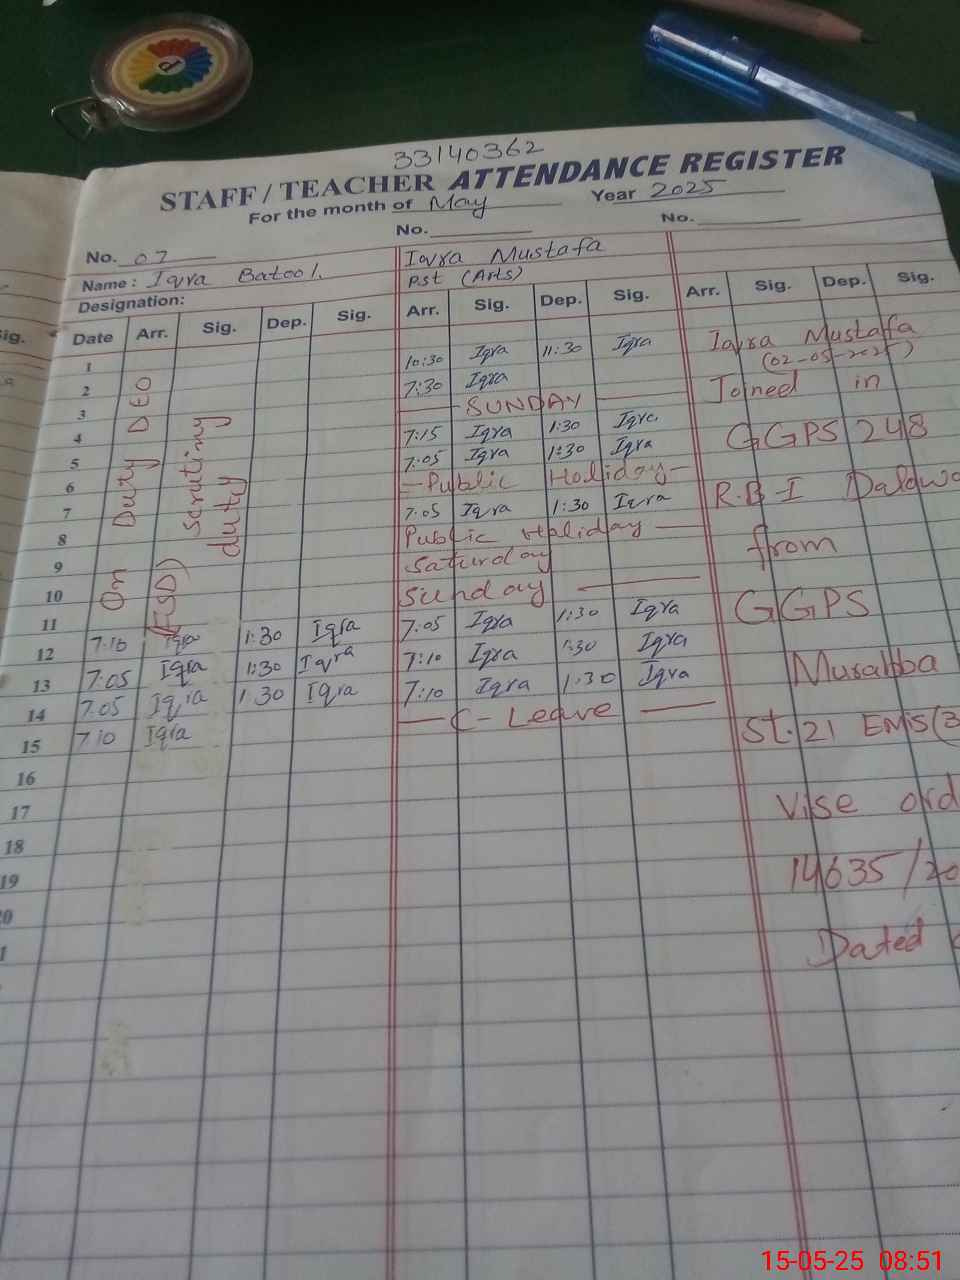 33140362
STAFF / TEACHER ATTENDANCE REGISTER
For the month of May Year 2025
No. 07 No. No.
Name: Iqra Batool. Iqra Mustafa
Designation: PST (Arts)
Date Arr. Sig. Dep. Sig. Arr. Sig. Dep. Sig. Arr. Sig. Dep. Sig.
1 10:30 Iqra 11:30 Iqra Iqra Mustafa
(02-05-2025)
2 7:30 Iqra Joined in
3 SUNDAY
4 7:15 Iqra 1:30 Iqra GGPS 248
5 7:05 Iqra 1:30 Iqra
6 Public Holiday R.B-I Daldwa
7 7:05 Iqra 1:30 Iqra
8 Public Haliday from
9 Saturday
10 Sunday GGPS
On Duty DEO
(FSD) Scrutiny
duty
11 7:10 Iqra 1:30 Iqra 7:05 Iqra 1:30 Iqra
12 7:05 Iqra 1:30 Iqra 7:10 Iqra 1:30 Iqra Murabba
13 7:05 Iqra 1:30 Iqra 7:10 Iqra 1:30 Iqra
14 7:10 Iqra C-Leave St.21 EMIS(3
15
16 Vise ord
17
18 14635/20
19
20 Dated
15-05-25 08:51